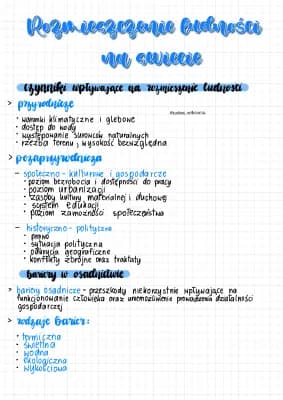 Rozmieszczenie ludności
na świecie
czynniki wpływające na rozmieszczenie ludności
> przyrodnicze
• warunki klimatyczne i glebowe
• dostęp do wody
• występowanie surowców naturalnych
• rzeźba terenu, wysokość bezwzględna
> pozaprzyrodnicze
– społeczno - kulturowe i gospodarcze
• poziom bezrobocia i dostępności do pracy
• poziom urbanizacji
• zasoby kultury materialnej i duchowej
• system edukacji
• poziom zamożności społeczeństwa
– historyczno - polityczne
• prawo
• sytuacja polityczna
• odkrycia geograficzne
• konflikty zbrojne oraz traktaty
bariery w osadnictwie
> bariery osadnicze - przeszkody niekorzystnie wpływające na
funkcjonowanie człowieka oraz uniemożliwienie prowadzenia działalności
gospodarczej
> rodzaje barier:
• termiczna
• świetlna
• wodna
• ekologiczna
• wysokościowa